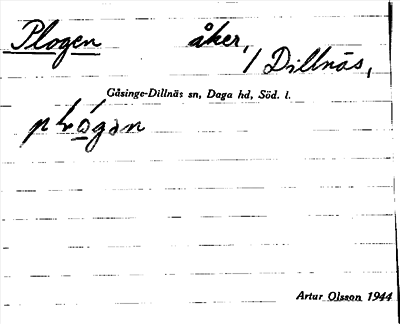 Plogen åker, / Dillnäs,
Gåsinge-Dillnäs sn, Daga hd, Söd. l.
Artur Olsson 1944